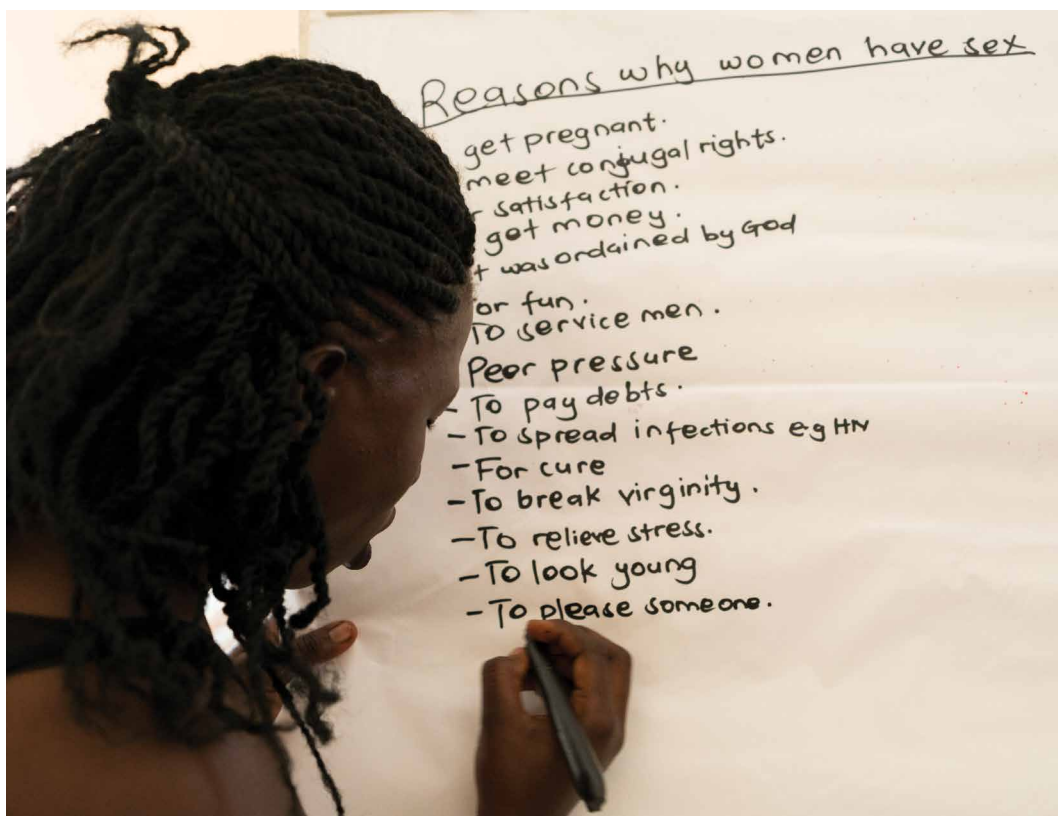 Reasons why women have sex
get pregnant.
meet conjugal rights.
satisfaction.
get money.
was ordained by God
or fun.
To service men.
Peer pressure
- To pay debts.
- To spread infections e.g HIV
- For cure
- To break virginity.
- To relieve stress.
- To look young
- To please someone.